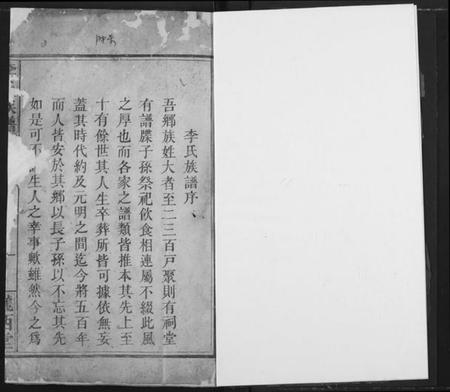 李氏族譜序
吾鄉族姓大者至二三百戶聚則有祠堂
有譜牒子孫祭祀飲食相連屬不綴此風
之厚也而各家之譜類皆推本其先上至
十有餘世其人生卒葬所皆可據依無妄
蓋其時代約及元明之間迄今將五百年
而人皆安於其鄉以長子孫以不忘其先
如是可不生人之幸事歟雖然今之為
族譜
隴西堂